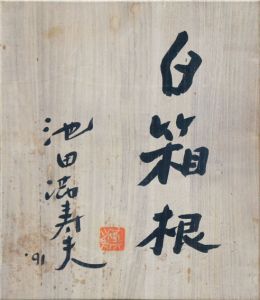 白箱根
池田満寿夫
'91